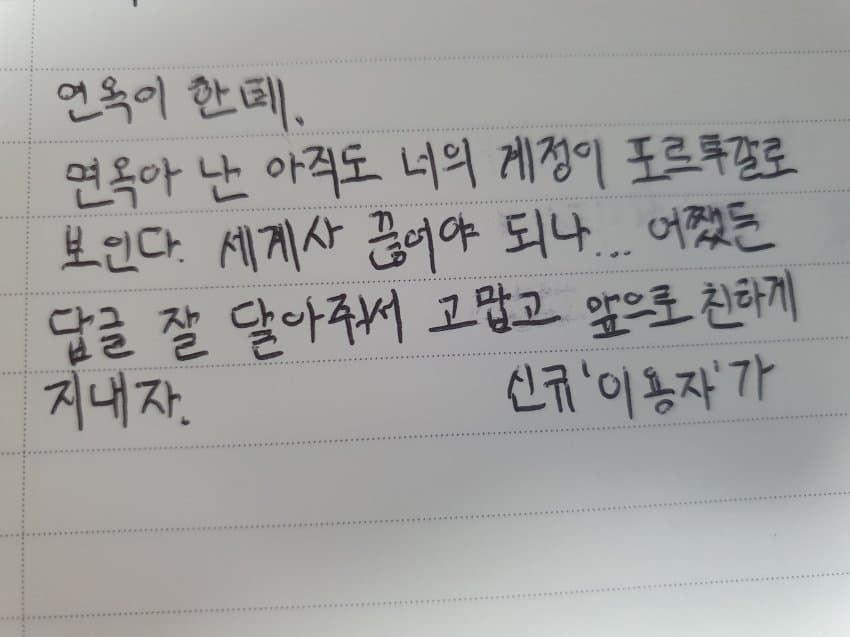 연옥이 한테.
연옥아 난 아직도 너의 계정이 포르투갈로
보인다. 세계사 끊어야 되나... 어쨌든
답글 잘 달아줘서 고맙고 앞으로 친하게
지내자. 신규 '이용자'가